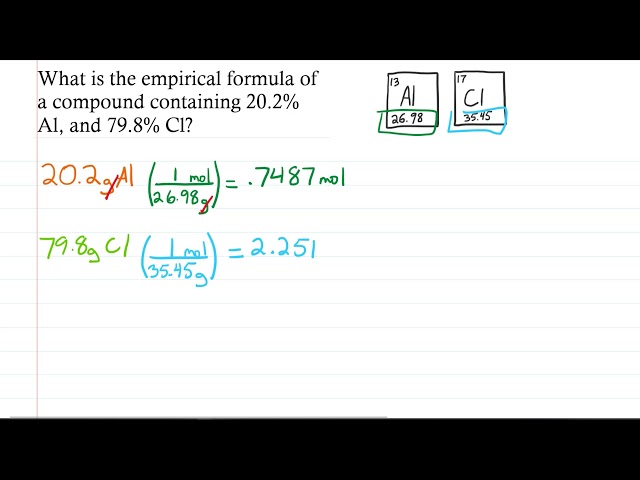 What is the empirical formula of
a compound containing 20.2%
Al, and 79.8% Cl?
13
Al
26.98
17
Cl
35.45
20.2g Al (1 mol / 26.98g) = .7487 mol
79.8g Cl (1 mol / 35.45g) = 2.251